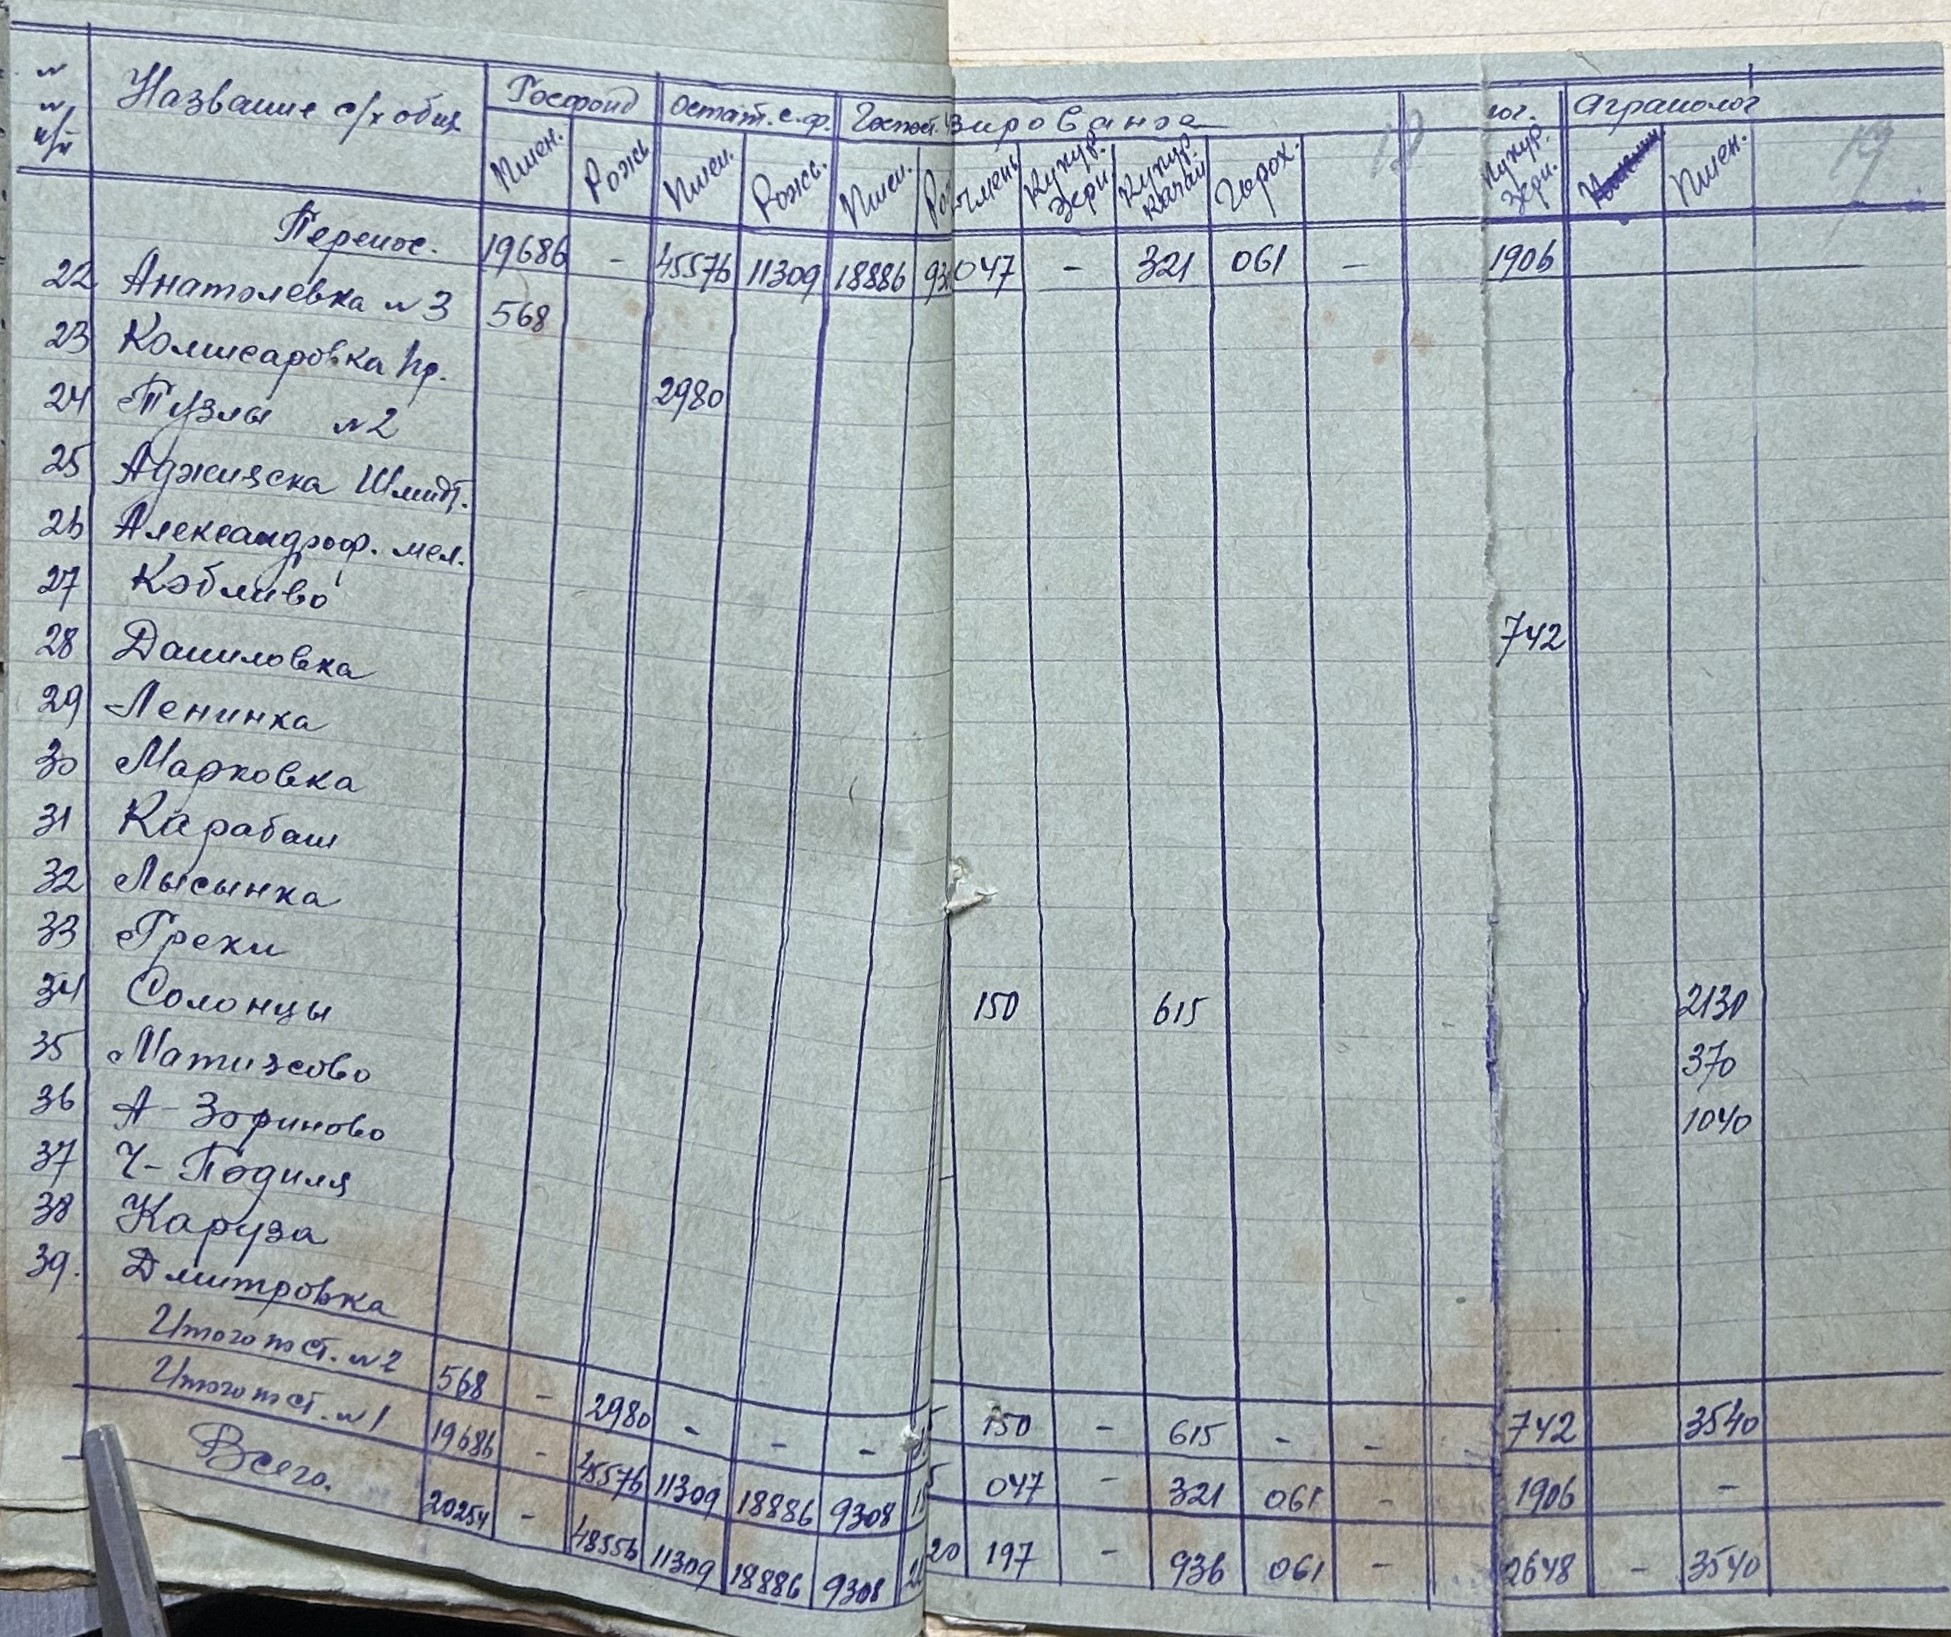 № № п/п Название с/х общ. Госфонд Остат. с. ф. Госпос. зированзе 18 ог. Агранолог 19
Пшен. Рожь Пшен. Рожь. Пшен. Ро чмень Кукур. Зерн. Кукур. качан Горох. Кукур. Зерн. Пшен.
Перенос. 19686 - 45576 11309 18886 930 047 - 321 061 - 1906
22 Анатолевка №3 568
23 Комисаровка Пр.
24 Тузлы №2 2980
25 Аджияска Шмидт.
26 Александроф. мел.
27 Кобливо
28 Даниловка 742
29 Ленинка
30 Марковка
31 Карабаш
32 Лысынка
33 Греки
34 Солонцы 150 615 2130
35 Матизсово 370
36 А-Зориново 1040
37 Ч-Подиля
38 Каруза
39. Дмитровка
Итого по ст. №2 568 - 2980 - - - 5 150 - 615 - - 742 3540
Итого по ст. №1 19686 - 45576 11309 18886 9308 15 5 047 - 321 061 - 1906 -
Всего. 20254 - 48556 11309 18886 9308 20 197 - 936 061 - 2648 - 3540